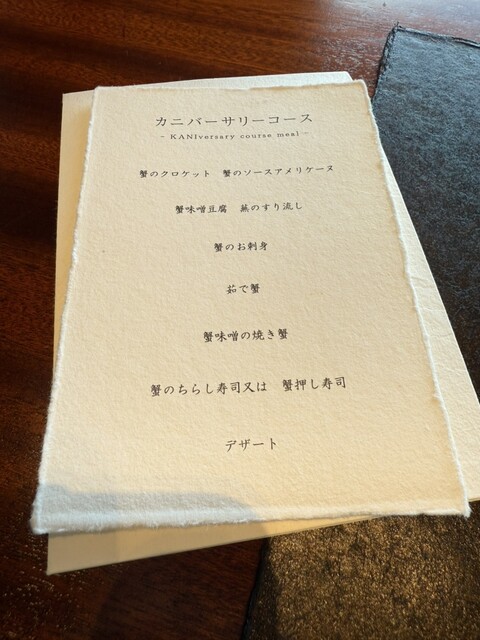 カニバーサリーコース
~ KANIversary course meal ~
蟹のクロケット　蟹のソースアメリケーヌ
蟹味噌豆腐　蕪のすり流し
蟹のお刺身
茹で蟹
蟹味噌の焼き蟹
蟹のちらし寿司又は　蟹押し寿司
デザート